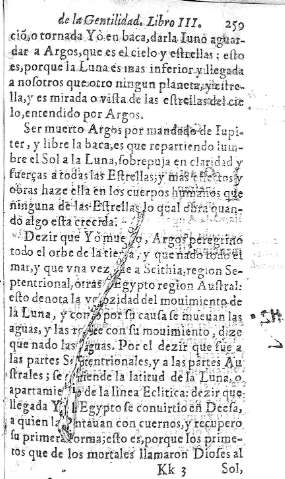 de la Gentilidad. Libro III. 259
ciò, o tornada Yò en baca, darla Iuno aguar-
dar a Argos, que es el cielo y estrellas; esto
es, porque la Luna es mas inferior y llegada
a nosotros que otro ningun planeta, y estre-
lla, y es mirada o vista de las estrellas del cie
lo, entendido por Argos.
Ser muerto Argos por mandado de Iupi-
ter, y libre la baca, es que repartiendo lum-
bre el Sol a la Luna, sobrepuja en claridad y
fuerças a todas las Estrellas, y mas efectos y
obras haze ella en los cuerpos humanos que
ninguna de las Estrellas, lo qual obra quan-
do algo esta crecida.
Dezir que Yò Argos peregrinò
todo el orbe de la y que nadò todo el
mar, y que vna vez a Scithia, region Se-
ptentrional, otras Egypto region Austral:
esto denota la velozidad del mouimiento de
la Luna, y como por su causa se mueuan las
aguas, y las con su mouimiento, dize
que nadò las aguas. Por el dezir que fue a
las partes Septentrionales, y a las partes Au
strales; se la latitud de la Luna, o
apartamiento de la linea Eclitica: dezir que
llegada Yò Egypto se conuirtiò en Deesa,
a quien con cuernos, y recuperò
su primera forma; esto es, porque los prime-
ros que de los mortales llamaron Dioses al
Kk 3 Sol,